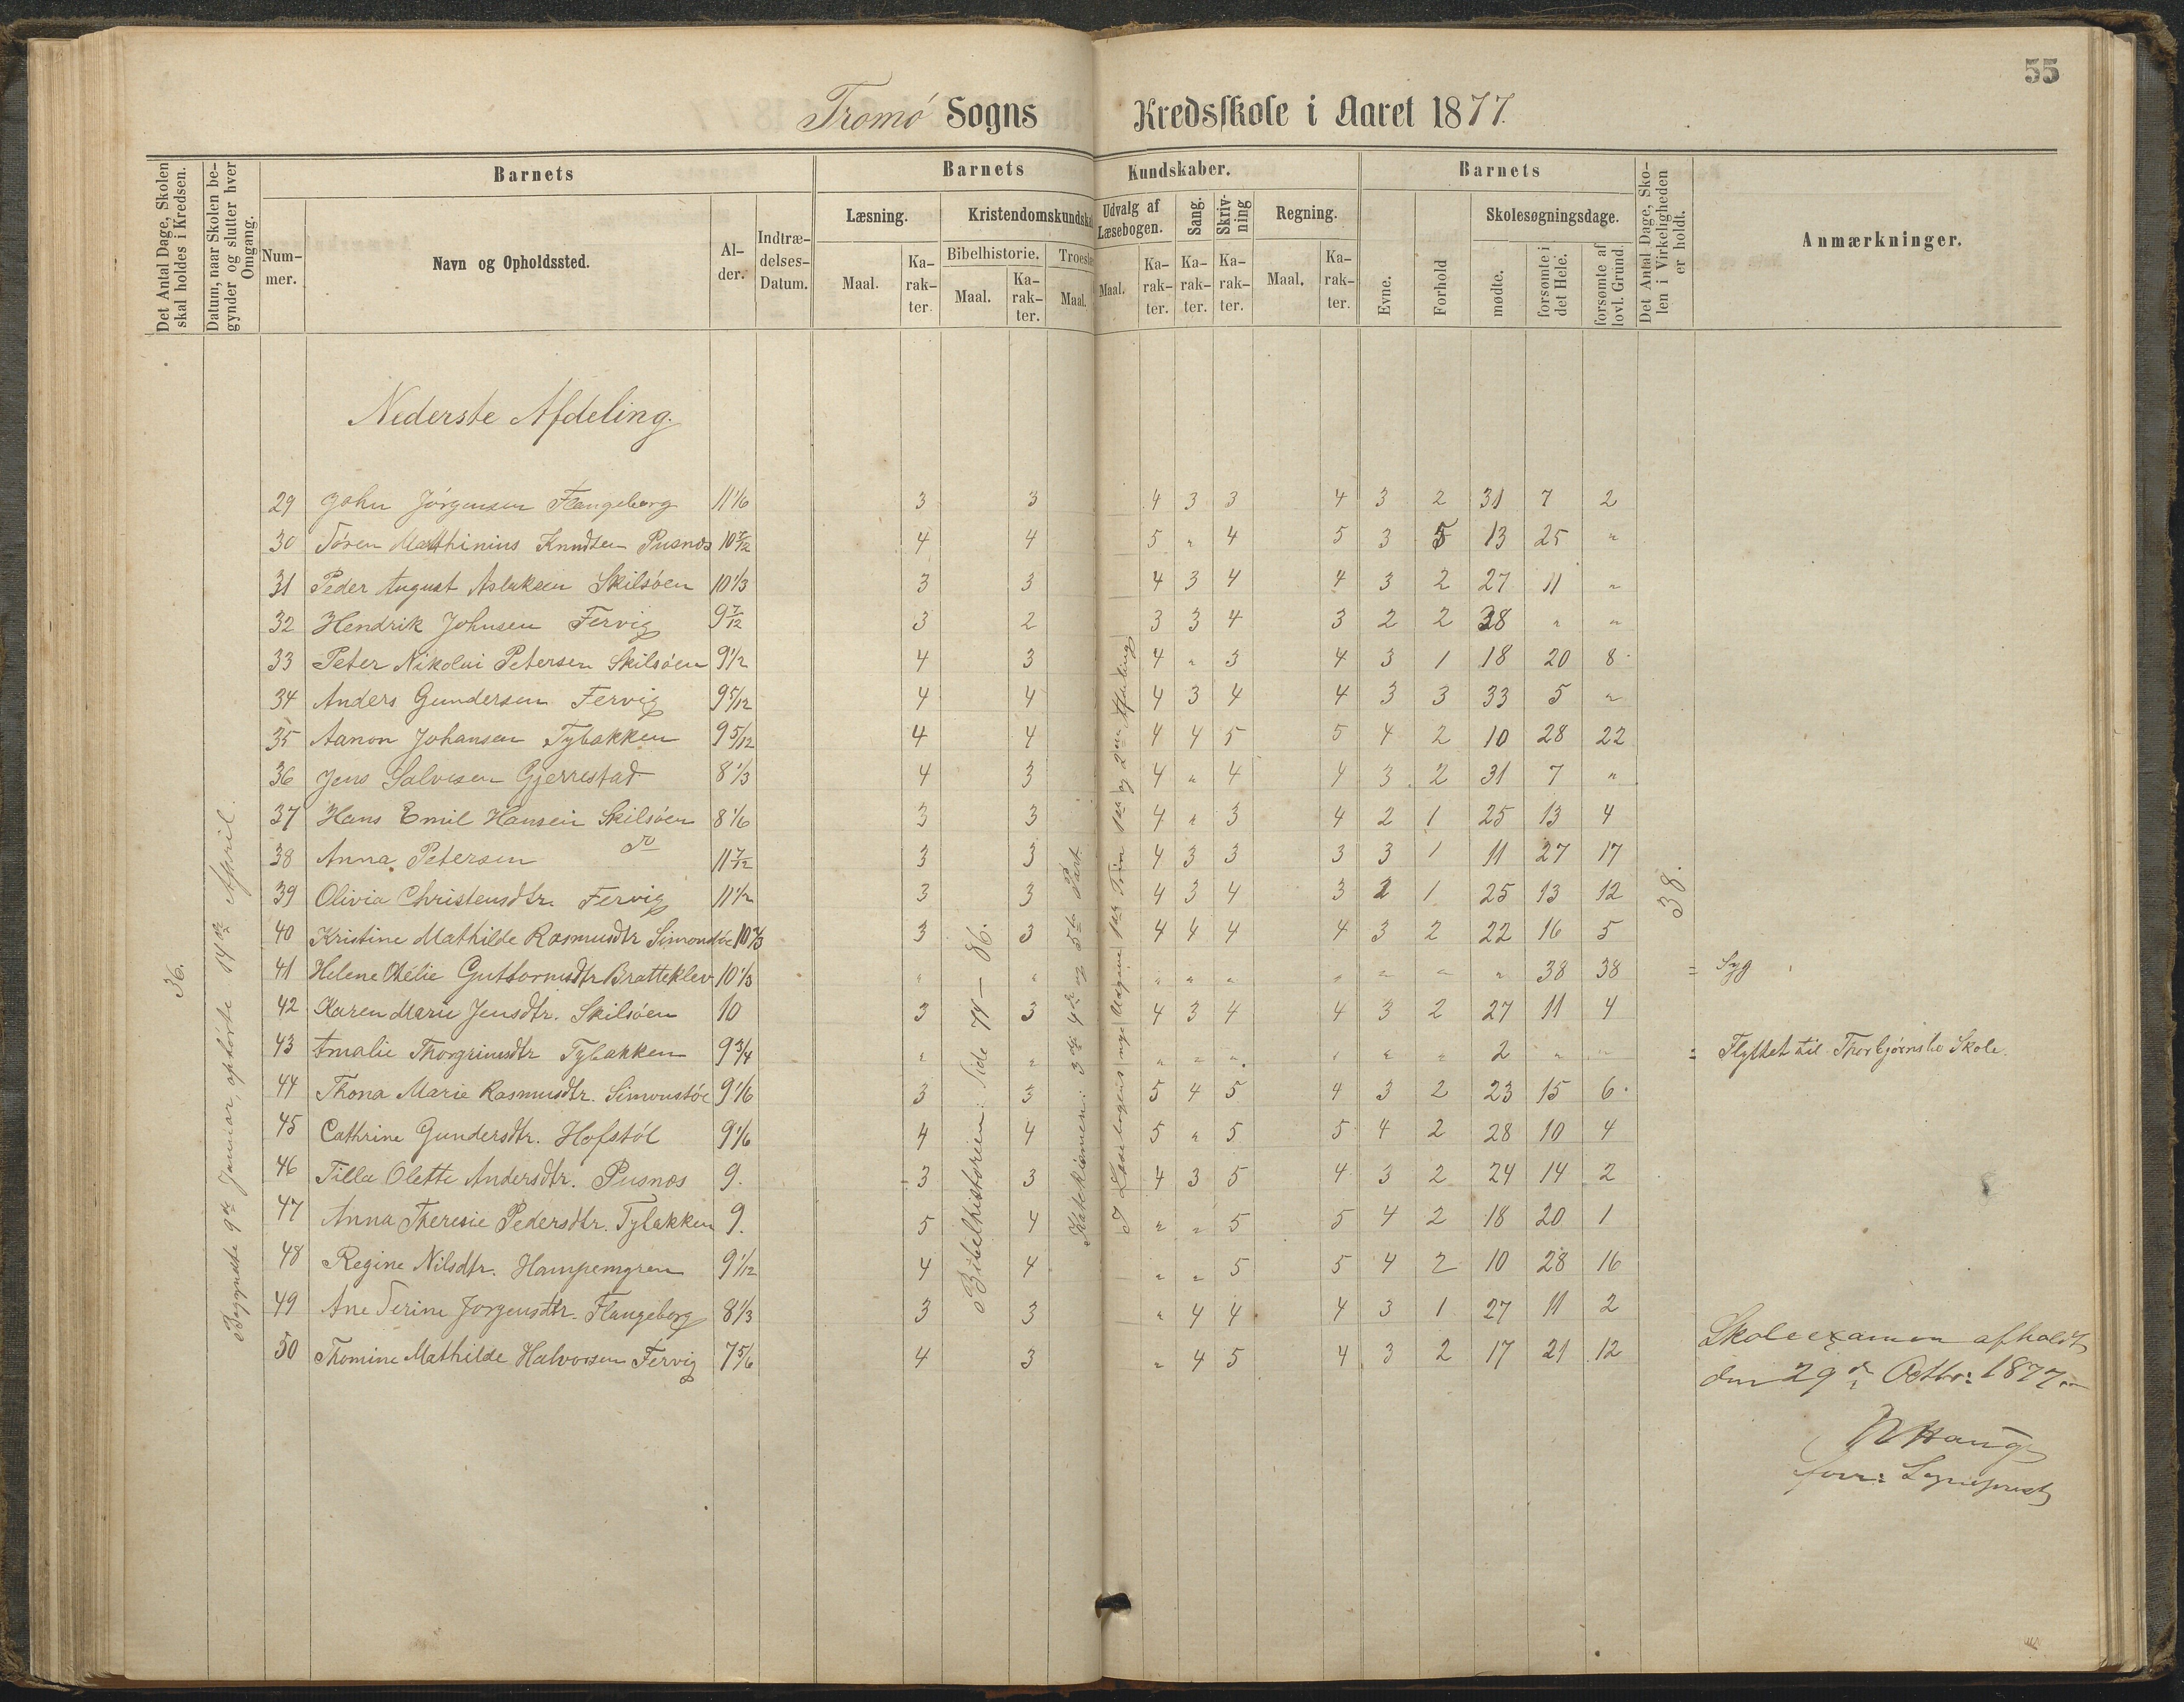 55
Tromö Sogns Kredsskole i Aaret 1877.
Det Antal Dage, Skolen skal holdes i Kredsen.
Datum, naar Skolen begynder og slutter hver Omgang.
Barnets
Nummer.
Navn og Opholdssted.
Alder.
Indtrædelses-Datum.
Barnets Kundskaber.
Læsning.
Maal.
Karakter.
Kristendomskundska
Bibelhistorie.
Maal.
Karakter.
Troeslæ
Maal.
Udvalg af Læsebogen.
Maal.
Karakter.
Sang.
Karakter.
Skrivning
Karakter.
Regning.
Maal.
Karakter.
Barnets
Evne.
Forhold
Skolesøgningsdage.
mødte.
forsømte i det Hele.
forsømte af lovl. Grund.
Det Antal Dage, Skolen i Virkeligheden er holdt.
Anmærkninger.
Nederste Afdeling.
36.
Begyndte 9de Januar, ophörte 14de April.
Bibelhistorien: Side 74 — 86.
Katekismen: 3die 4de og 5te Part.
I Læsebogens nye Udgave 1ste Trin 1ste og 2den Afdeling
38.
29 John Jörgensen Flangeborg 11 1/6 3 3 4 3 3 4 3 2 31 7 2
30 Sören Matthinius Knudsen Pusnæs 10 7/12 4 4 5 " 4 5 3 5 13 25 "
31 Peder August Aslaksen Skilsöen 10 1/3 3 3 4 3 4 4 3 2 27 11 "
32 Hendrik Johnsen Fervig 9 7/12 3 2 3 3 4 3 2 2 38 " "
33 Peter Nikolai Petersen Skilsöen 9 1/2 4 3 4 " 3 4 3 1 18 20 8
34 Anders Gundersen Fervig 9 5/12 4 4 4 3 4 4 3 3 33 5 "
35 Aanon Johansen Tybakken 9 5/12 4 4 4 4 5 5 4 2 10 28 22
36 Jens Salvesen Gjerrestad 8 1/3 4 3 4 " 4 4 3 2 31 7 "
37 Hans Emil Hansen Skilsöen 8 1/6 3 3 4 " 3 4 2 1 25 13 4
38 Anna Petersen do 11 7/12 3 3 4 3 3 3 3 1 11 27 17
39 Olivia Christensdtr. Fervig 11 1/2 3 3 4 3 4 3 2 1 25 13 12
40 Kristine Mathilde Rasmusdtr Simonstöe 10 2/3 3 3 4 4 4 4 3 2 22 16 5
41 Helene Otelie Guttormsdtr Bratteklev 10 1/3 " " " " " " " " " 38 38 = Syg
42 Karen Marie Jensdtr. Skilsöen 10 3 3 4 3 4 4 3 2 27 11 4
43 Amalie Thorgrimsdtr Tybakken 9 3/4 " " " " " " " " 2 " " = Flyttet til Thorbjørnsbo Skole.
44 Thona Marie Rasmusdtr. Simonstöe 9 1/6 3 3 5 4 5 4 3 2 23 15 6
45 Cathrine Gundersdtr. Hofstöl 9 1/6 4 4 5 " 5 5 4 2 28 10 4
46 Tilla Olette Andersdtr. Pusnæs 9. 3 3 4 3 5 4 3 2 24 14 2
47 Anna Theresie Pedersdtr. Tybakken 9. 5 4 " " 5 5 4 2 18 20 1
48 Regine Nilsdtr. Hampemyren 9 1/12 4 4 " " 5 5 4 2 10 28 16
49 Ane Serine Jorgensdtr. Flangeborg 8 1/3 3 3 " 4 4 4 3 1 27 11 2
50 Thomine Mathilde Halvorsen Fervig 7 5/6 4 3 " 4 5 4 3 2 17 21 12
Skoleexamen afholdt
den 29de Octbr: 1877.
Haug
Sognepræst